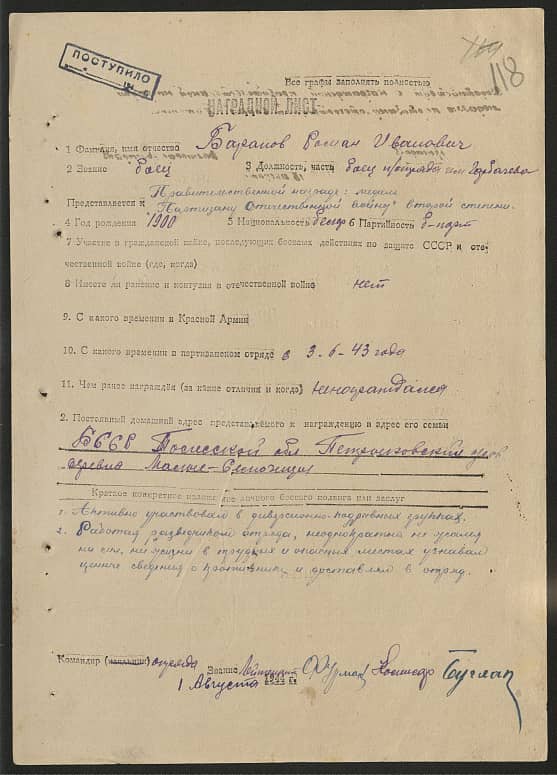 ПОСТУПИЛО
118
Все графы заполнять полностью
НАГРАДНОЙ ЛИСТ
1 Фамилия, имя отчество Баранов Роман Иванович
2 Звание боец 3 Должность, часть боец
Правительственной награде: медали
Представляется к "Партизану отечественной войны" второй степени.
4 Год рождения 1900 5 Национальность белор 6 Партийность б-парт
7 Участие в гражданской войне, последующих боевых действиях по защите СССР и оте-
чественной войне (где, когда)
8 Имеете ли ранение и контузии в отечественной войне нет
9. С какого времени в Красной Армии
10. С какого времени в партизанском отряде с 3-6-43 года
11. Чем ранее награждён (за какие отличия и когда) ненаграждался
2. Постоянный домашний адрес представляемого к награждению и адрес его семьи
БССР Полесской обл. Петриковский
деревня Малые-Селютичи
Краткое конкретное изложение личного боевого подвига или заслуг
1. Активно участвовал в диверсионно-подрывных группах.
2. Работая разведчиком отряда, неоднократно не жалея
ни сил, ни жизни в трудных и опасных местах узнавал
ценные сведения о противнике и доставлял в отряд.
Командир (начальник) отряда Звание Лейтенант Фурман Комиссар Буглак
1 Августа 1944 г.